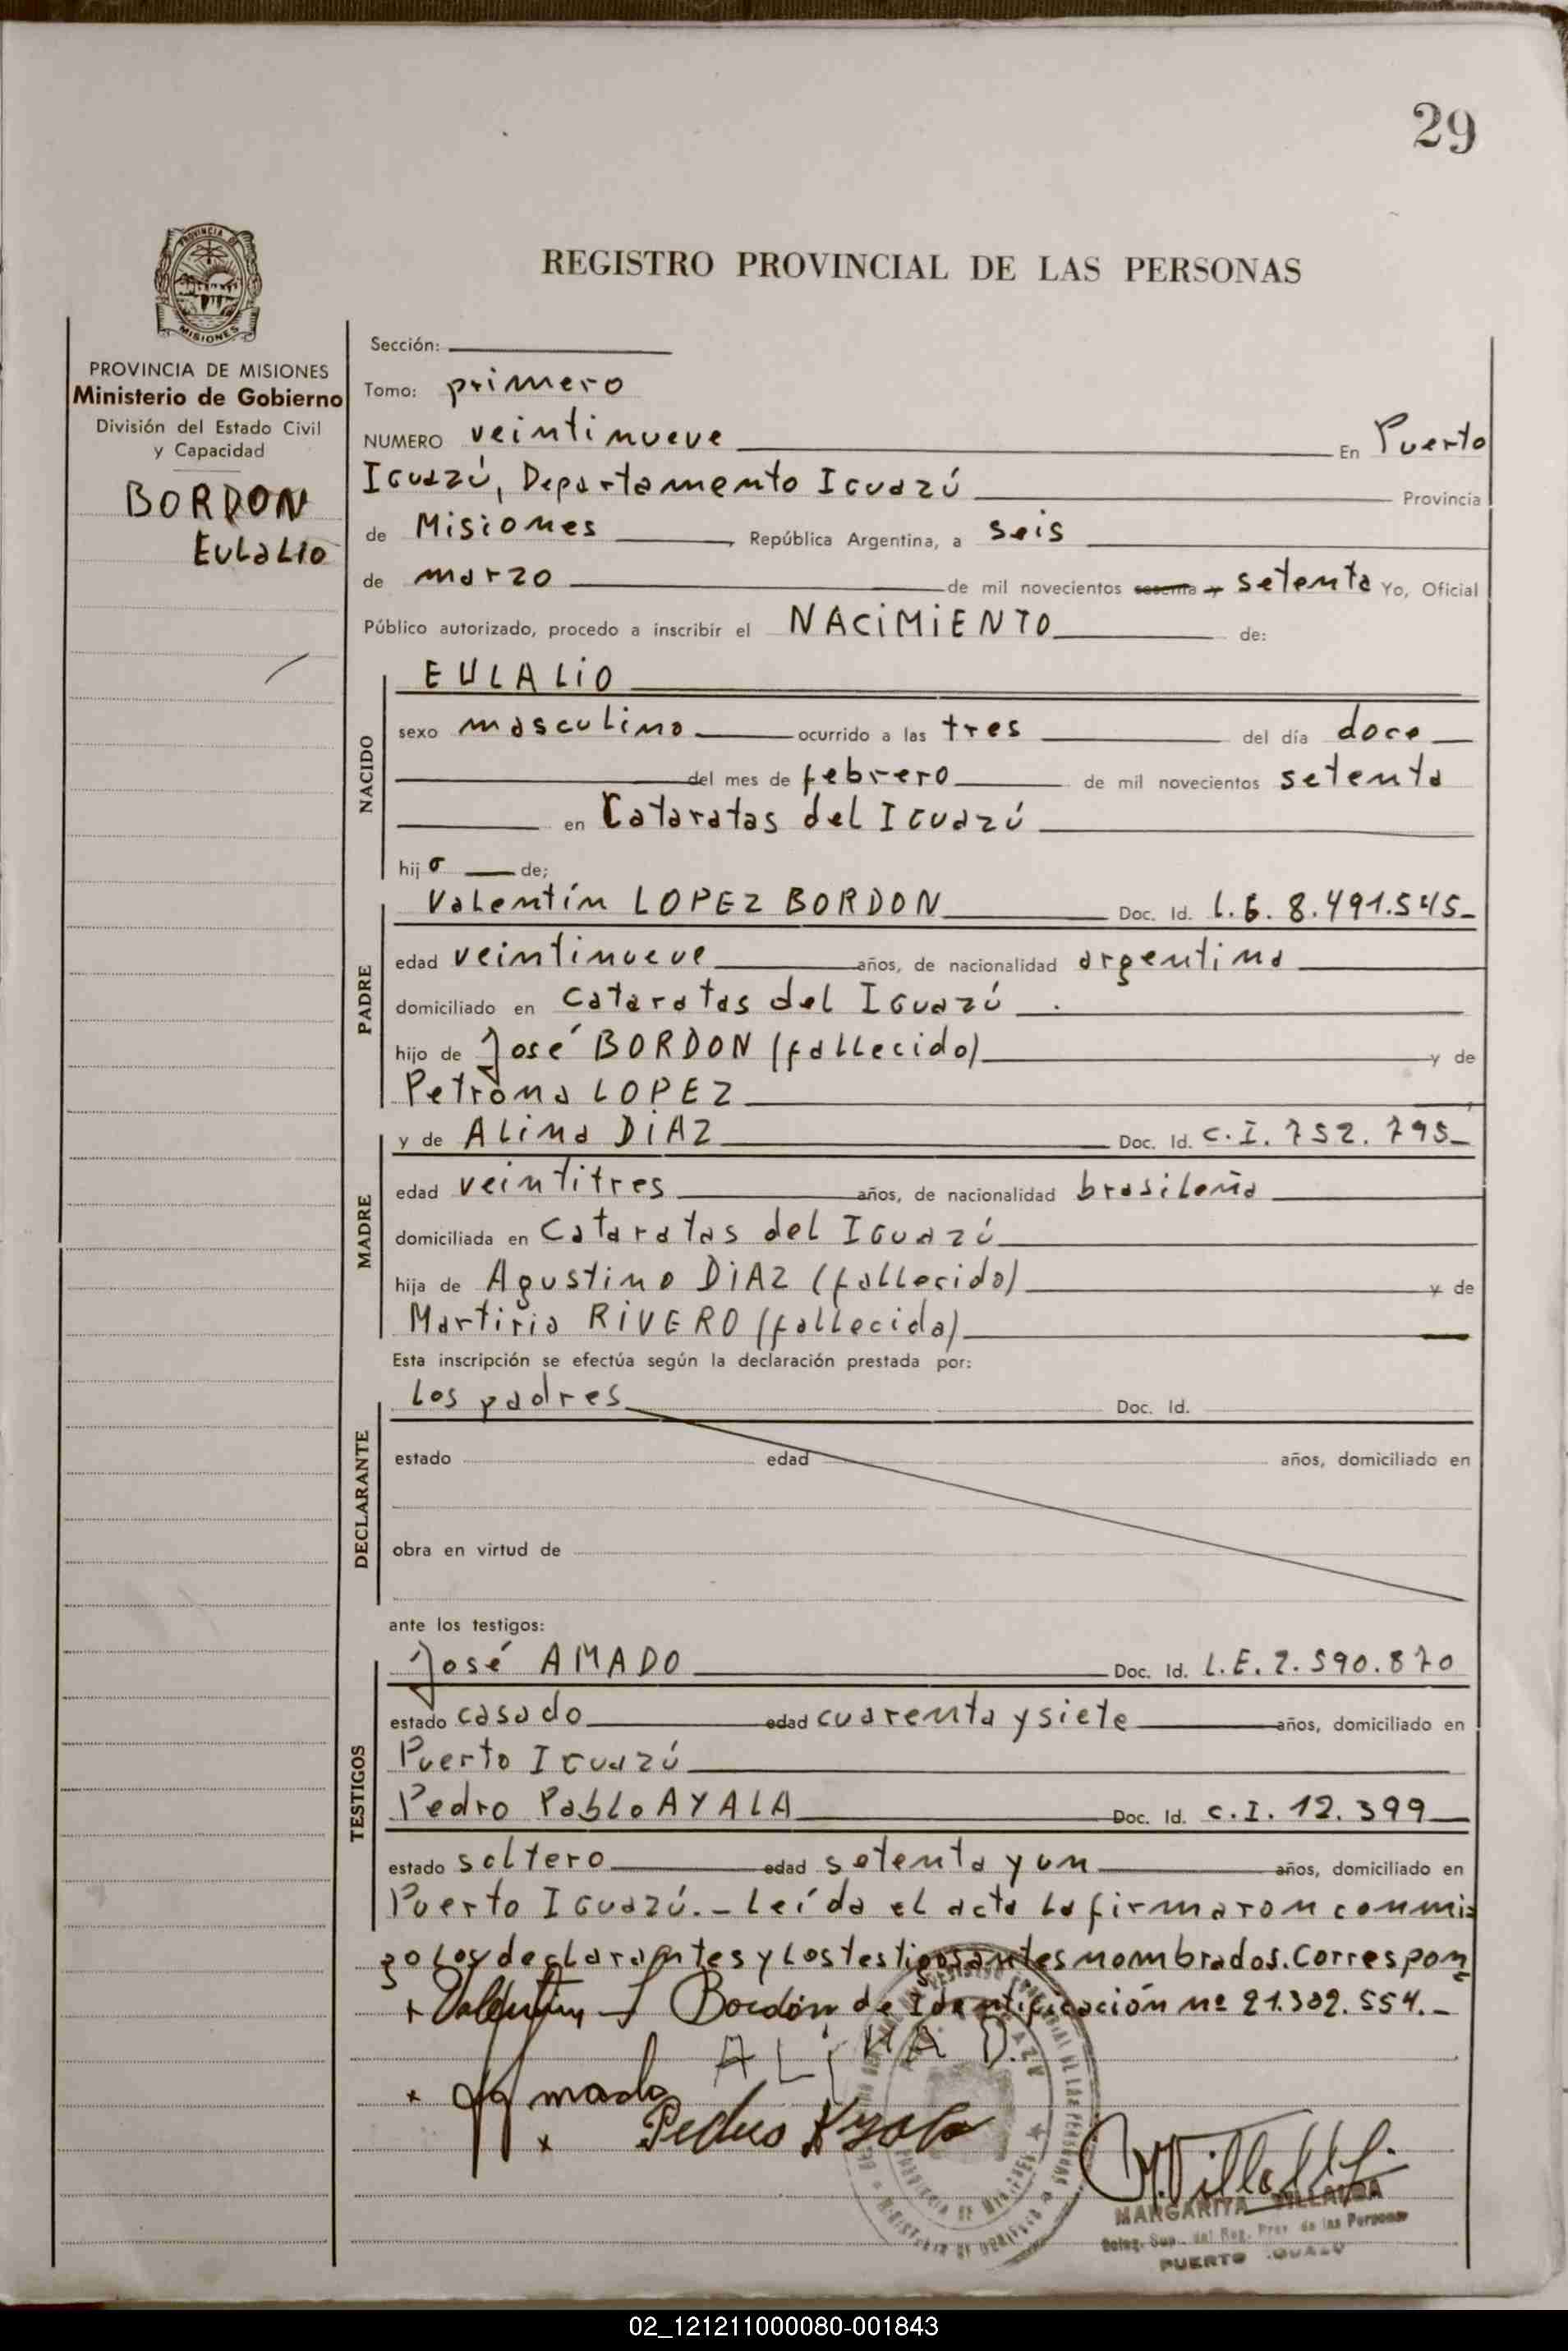 29
PROVINCIA DE
MISIONES
REGISTRO PROVINCIAL DE LAS PERSONAS
PROVINCIA DE MISIONES
Ministerio de Gobierno
División del Estado Civil
y Capacidad
BORDON
Eulalio
Sección:
Tomo: primero
NUMERO veintinueve En Puerto
Iguazú, Departamento Iguazú Provincia
de Misiones, República Argentina, a seis
de marzo de mil novecientos sesenta y setenta Yo, Oficial
Público autorizado, procedo a inscribir el NACIMIENTO de:
NACIDO
EULALIO
sexo masculino ocurrido a las tres del día doce
del mes de febrero de mil novecientos setenta
en Cataratas del Iguazú
hijo de;
PADRE
Valentín LOPEZ BORDON Doc. Id. L.E. 8.491.545
edad veintinueve años, de nacionalidad argentina
domiciliado en Cataratas del Iguazú
hijo de José BORDON (fallecido) y de
Petrona LOPEZ
MADRE
y de Alina DIAZ Doc. Id. C.I. 752.795
edad veintitres años, de nacionalidad brasileña
domiciliada en Cataratas del Iguazú
hija de Agustino DIAZ (fallecido) y de
Martiria RIVERO (fallecida)
Esta inscripción se efectúa según la declaración prestada por:
DECLARANTE
los padres Doc. Id.
estado edad años, domiciliado en
obra en virtud de
ante los testigos:
TESTIGOS
José AMADO Doc. Id. L.E. 7.590.870
estado casado edad cuarenta y siete años, domiciliado en
Puerto Iguazú
Pedro Pablo AYALA Doc. Id. C.I. 12.399
estado soltero edad setenta y un años, domiciliado en
Puerto Iguazú.- Leída el acta la firmaron conmi
go los declarantes y los testigos antes nombrados. Correspon
+ Valentin L Bordón de Identificación nº 21.302.554.-
ALiNA D.
x Amado
x Pedro Ayala
M. Villalba
MARGARITA VILLALBA
Deleg. Sup. del Reg. Prov. de las Personas
PUERTO IGUAZU
02_121211000080-001843